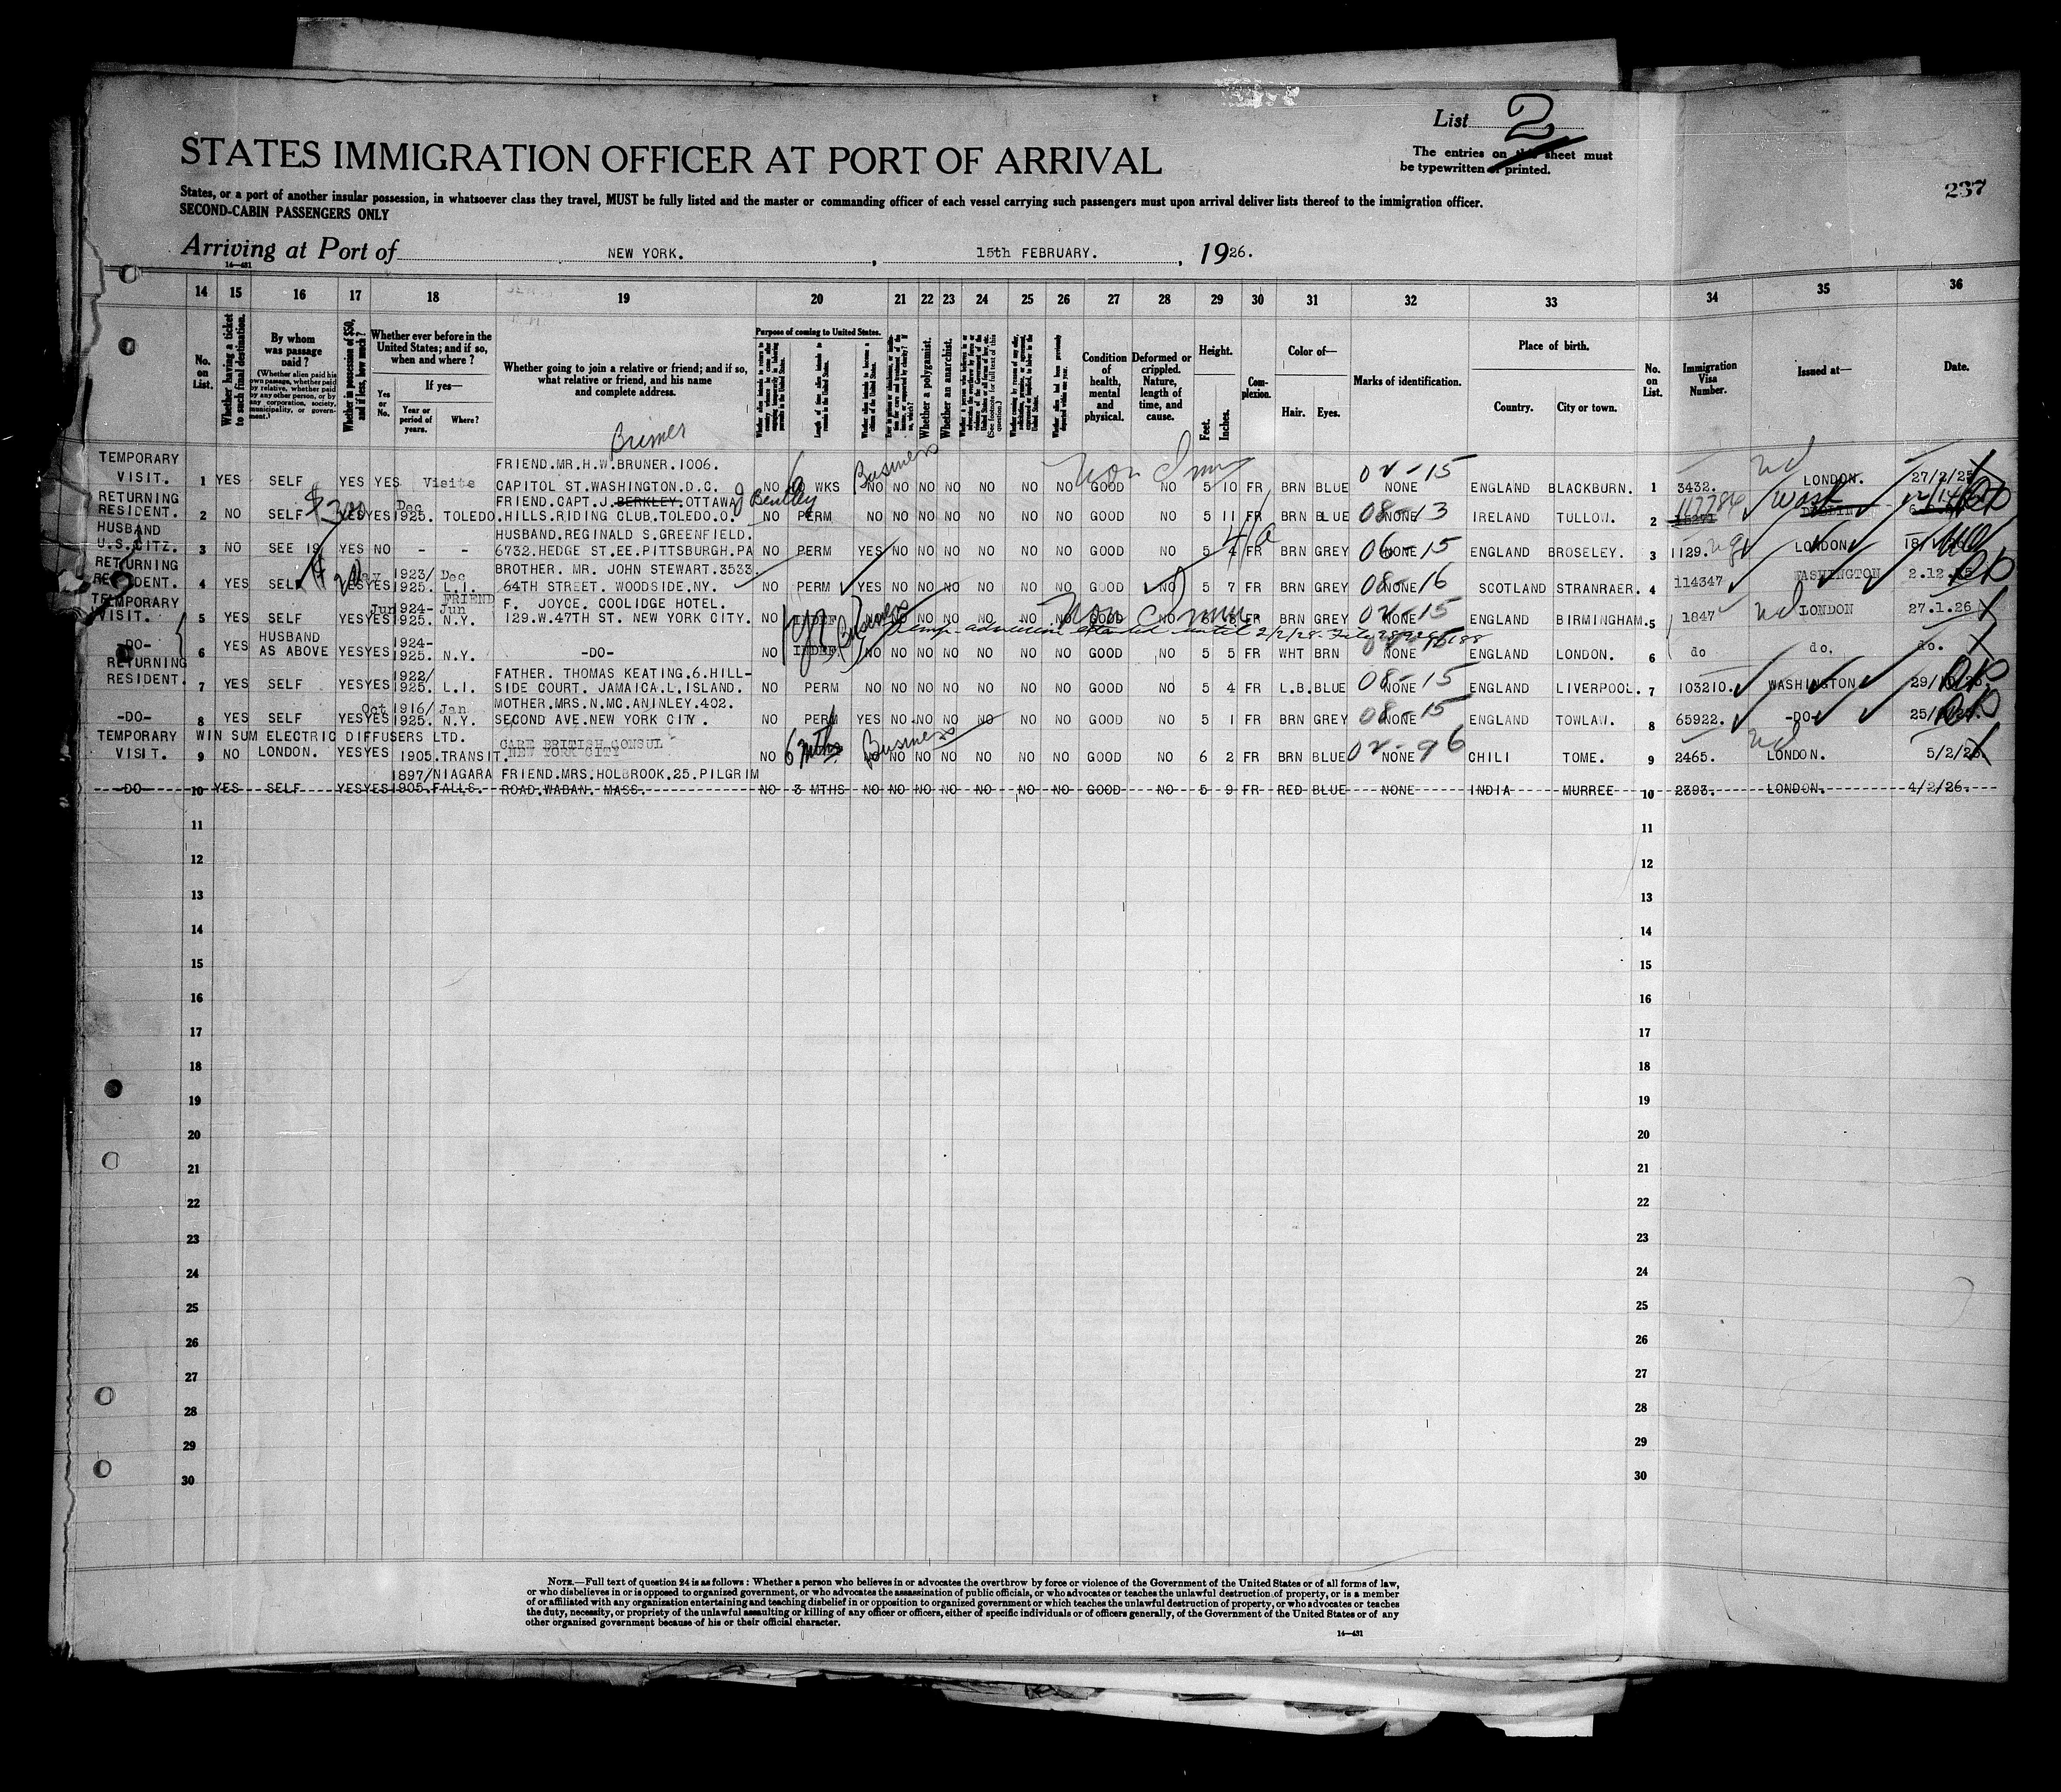 List 2
The entries on this sheet must
be typewritten or printed.
237
STATES IMMIGRATION OFFICER AT PORT OF ARRIVAL
States, or a port of another insular possession, in whatsoever class they travel, MUST be fully listed and the master or commanding officer of each vessel carrying such passengers must upon arrival deliver lists thereof to the immigration officer.
SECOND-CABIN PASSENGERS ONLY
Arriving at Port of NEW YORK. , 15th FEBRUARY. , 1926.
14—431
14 15 16 17 18 19 20 21 22 23 24 25 26 27 28 29 30 31 32 33 34 35 36
No. on List.
Whether having a ticket to such final destination.
By whom was passage paid?
(Whether alien paid his own passage, whether paid by relative, whether paid by any other person, or by any corporation, society, municipality, or government.)
Whether in possession of $50, and if less, how much?
Whether ever before in the United States; and if so, when and where?
Yes or No.
If yes—
Year or period of years.
Where?
Whether going to join a relative or friend; and if so, what relative or friend, and his name and complete address.
Purpose of coming to United States.
Length of time alien intends to remain in the United States.
Whether alien intends to become a citizen of the United States.
Whether a polygamist.
Whether an anarchist.
Condition of health, mental and physical.
Deformed or crippled. Nature, length of time, and cause.
Height.
Feet. Inches.
Complexion.
Color of—
Hair. Eyes.
Marks of identification.
Place of birth.
Country. City or town.
No. on List.
Immigration Visa Number.
Issued at—
Date.
Bruner
TEMPORARY FRIEND.MR.H.W.BRUNER.1006.
VISIT. 1 YES SELF YES YES Visits CAPITOL ST.WASHINGTON.D.C. NO 6 WKS Business NO NO NO NO NO NO NO GOOD Non Imm NO 5 10 FR BRN BLUE 02-15 NONE ENGLAND BLACKBURN. 1 3432. LONDON. 27/2/25
RETURNING FRIEND.CAPT.J.BERKLEY.OTTAWA Bentley
RESIDENT. 2 NO SELF YES YES Dec 1925. TOLEDO.HILLS.RIDING CLUB.TOLEDO.O. NO PERM NO NO NO NO NO NO NO GOOD NO 5 11 FR BRN BLUE 08-13 NONE IRELAND TULLOW. 2 117784 Wash
HUSBAND HUSBAND.REGINALD S.GREENFIELD.
U.S.CITZ. 3 NO SEE 19 YES NO - - 6732.HEDGE ST.EE.PITTSBURGH.PA NO PERM YES NO NO NO NO NO NO GOOD NO 5 4 FR BRN GREY 06-15 NONE ENGLAND BROSELEY. 3 1129. LONDON
RETURNING BROTHER. MR. JOHN STEWART.3533.
RESIDENT. 4 YES SELF $20 YES YES 1923/ Dec 1925. L.I. 64TH STREET. WOODSIDE.NY. NO PERM YES NO NO NO NO NO NO GOOD NO 5 7 FR BRN GREY 08-16 NONE SCOTLAND STRANRAER. 4 114347 WASHINGTON 2.12.
TEMPORARY FRIEND F. JOYCE. COOLIDGE HOTEL.
VISIT. 5 YES SELF YES YES Jun 1924- Jun 1925. N.Y. 129.W.47TH ST. NEW YORK CITY. NO INDEF 1 yr Business NO NO NO NO NO GOOD Non Imm NO FR BRN GREY 02-15 NONE ENGLAND BIRMINGHAM. 5 1847 LONDON 27.1.26
Temp admission extended until 2/2/28
-DO- 6 YES HUSBAND AS ABOVE YES YES 1924- 1925. N.Y. -DO- NO INDEF NO NO NO NO NO NO NO GOOD NO 5 5 FR WHT BRN NONE ENGLAND LONDON. 6 do do. do.
RETURNING FATHER. THOMAS KEATING.6.HILL-
RESIDENT. 7 YES SELF YES YES 1922/ 1925. L.I. SIDE COURT. JAMAICA.L.ISLAND. NO PERM NO NO NO NO NO NO NO GOOD NO 5 4 FR L.B. BLUE 08-15 NONE ENGLAND LIVERPOOL. 7 103210. WASHINGTON
MOTHER.MRS.N.MC.ANINLEY.402.
-DO- 8 YES SELF YES YES Oct 1916/ Jan 1925. N.Y. SECOND AVE.NEW YORK CITY. NO PERM YES NO NO NO NO NO NO GOOD NO 5 1 FR BRN GREY 08-15 NONE ENGLAND TOWLAW. 8 65922. -DO-
TEMPORARY WIN SUM ELECTRIC DIFFUSERS LTD. CARE BRITISH CONSUL
VISIT. 9 NO LONDON. YES YES 1905. TRANSIT. NEW YORK CITY NO 6 mths Business NO NO NO NO NO NO NO GOOD NO 6 2 FR BRN BLUE 02-96 NONE CHILI TOME. 9 2465. LONDON. 5/2/26
1897/ NIAGARA FRIEND.MRS.HOLBROOK.25.PILGRIM
-DO- 10 YES SELF YES YES 1905. FALLS. ROAD.WABAN. MASS. NO 3 MTHS NO NO NO NO NO NO NO GOOD NO 5 9 FR RED BLUE NONE INDIA MURREE 10 2393. LONDON. 4/2/26.
11 11
12 12
13 13
14 14
15 15
16 16
17 17
18 18
19 19
20 20
21 21
22 22
23 23
24 24
25 25
26 26
27 27
28 28
29 29
30 30
NOTE.—Full text of question 24 is as follows: Whether a person who believes in or advocates the overthrow by force or violence of the Government of the United States or of all forms of law,
or who disbelieves in or is opposed to organized government, or who advocates the assassination of public officials, or who advocates or teaches the unlawful destruction of property, or is a member
of or affiliated with any organization entertaining and teaching disbelief in or opposition to organized government or which teaches the unlawful destruction of property, or who advocates or teaches
the duty, necessity, or propriety of the unlawful assaulting or killing of any officer or officers, either of specific individuals or of officers generally, of the Government of the United States or of any
other organized government because of his or their official character.
14—431